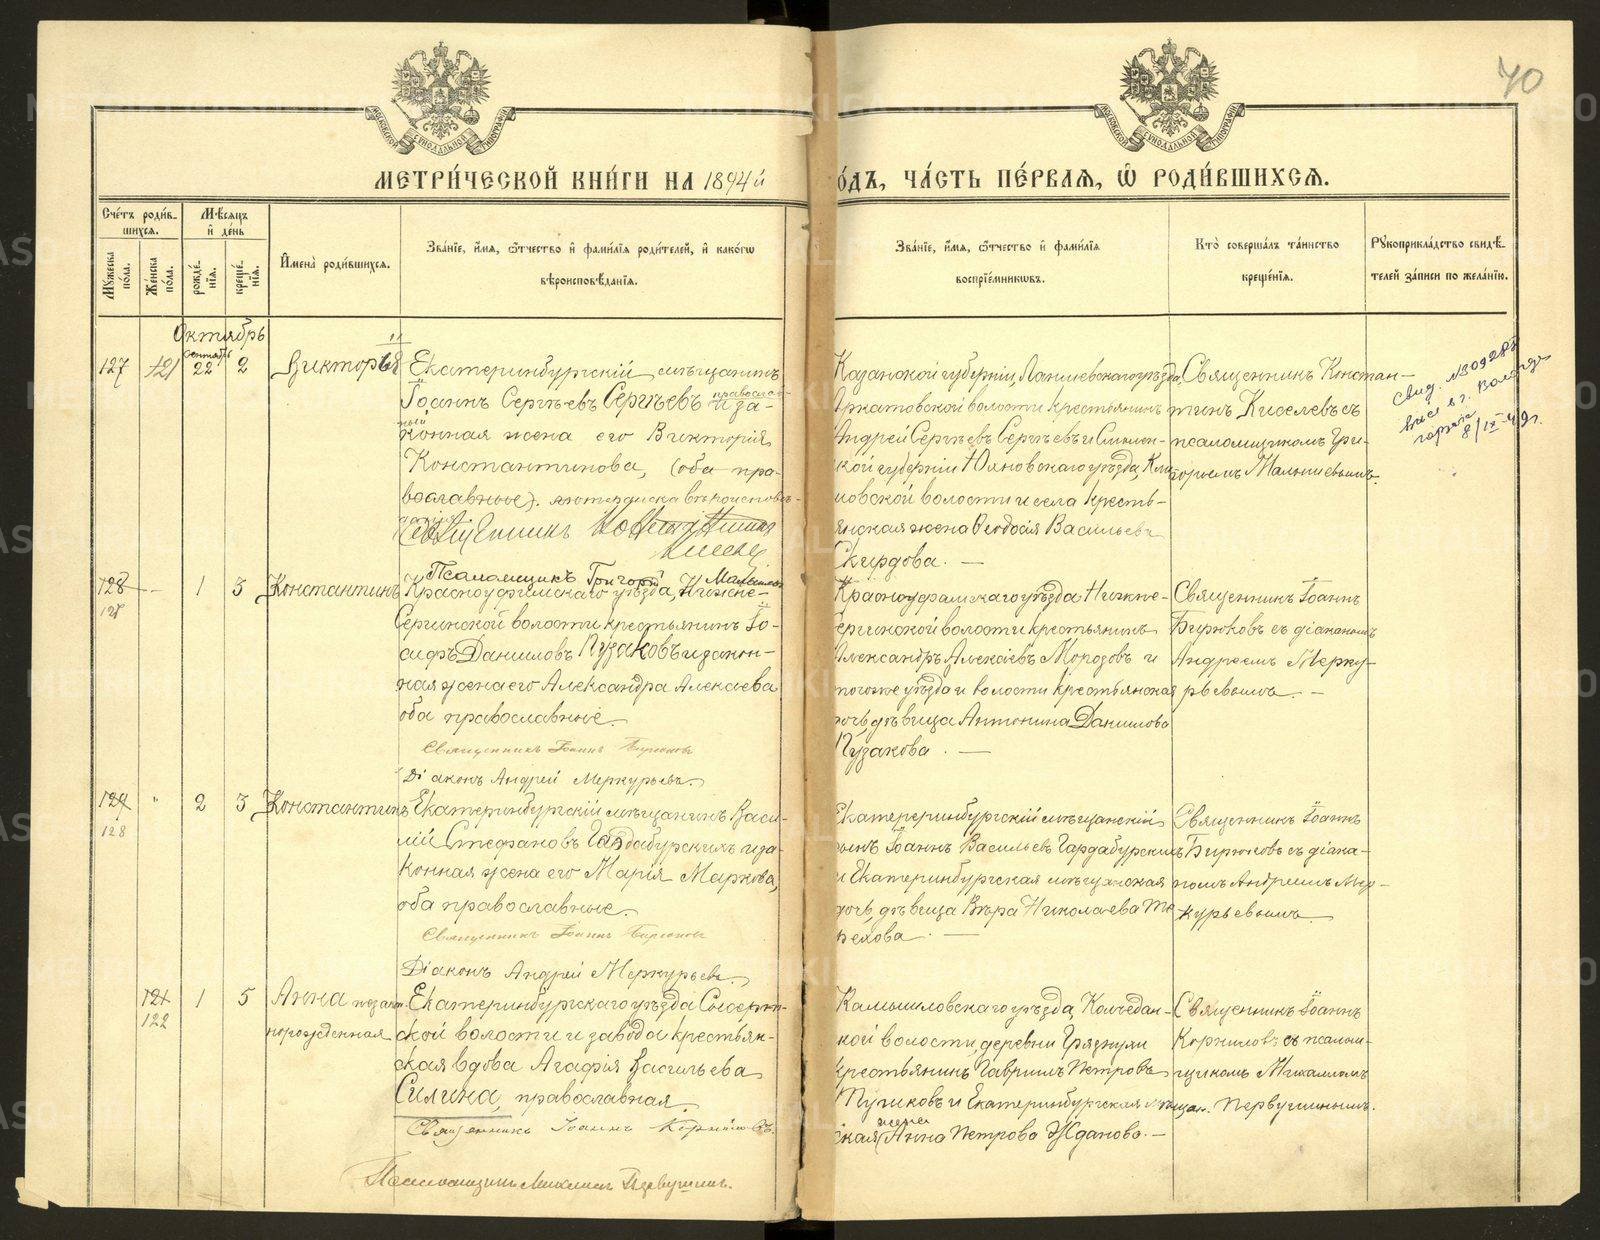 70
МОСКОВСКОЙ СѴНОДАЛЬНОЙ ТИПОГРАФІИ
МОСКОВСКОЙ СѴНОДАЛЬНОЙ ТИПОГРАФІИ
МЕТРИ́ЧЕСКОЙ КНИ́ГИ НА 1894й
О́ДЪ, ЧА́СТЬ ПЕ́РВАЯ, Ѡ РОДИ́ВШИХСЯ.
Сче́тъ роди́в-
шихся.
Мꙋжеска по́ла.
Же́нска по́ла.
Мѣ́сяцъ
и҆ де́нь
рожде́-
нія.
креще́-
нія.
И҆мена̀ роди́вшихся.
Зва́ніе, и҆́мя, ѻ҆́тчество и҆ фами́лія роди́телей, и҆ како́гѡ
вѣроисповѣ́данія.
Зва́ніе, и҆́мя, ѻ҆́тчество и҆ фами́лія
воспріе́мниковъ.
Кто̀ соверша́лъ та́инство
креще́нія.
Рꙋкоприкла́дство свидѣ́-
телей за́писи по жела́нію.
Октябрь
127 121 сентябрь 22 2
Екатеринбургскій мѣщанинъ
Іоаннъ Сергѣевъ Сергѣевъ православ-
ный и за-
конная жена его Викторія
Константинова, (оба пра-
вославные). лютеранска вѣроисповѣ-
Священникъ Константинъ
Киселевъ
Псаломщикъ Григорій Малышевъ
Казанской губерніи, Лаишевскаго уѣзда,
Аркатовской волости крестьянинъ
Андрей Сергѣевъ Сергѣевъ и Смолен-
ской губерніи Юхновскаго уѣзда, Кли-
мовской волости и села кресть-
янская жена Ѳеодосія Васильева
Скирдова. —
Священникъ Констан-
тинъ Киселевъ съ
псаломщикомъ Гри-
горіемъ Малышевымъ.
свид.
8/IX-49г.
128 — 1 3 Константинъ
127
Красноуфимскаго уѣзда, Нижне-
Сергинской волости крестьянинъ Іо-
сифъ Даниловъ Пузаковъ и закон-
ная жена его Александра Алексѣева
оба православные.
Священникъ Іоаннъ Бирюковъ
Діаконъ Андрей Меркурьевъ.
Красноуфимскаго уѣзда Нижне-
Сергинской волости крестьянинъ
Александръ Алексѣевъ Морозовъ и
того же уѣзда и волости крестьянская
дочь, дѣвица Антонина Данилова
Пузакова. —
Священникъ Іоаннъ
Бирюковъ съ діакономъ
Андреемъ Мерку-
рьевымъ. —
129 " 2 3 Константинъ
128
Екатеринбургскій мѣщанинъ Васи-
лій Стефановъ Гардабурскихъ и за-
конная жена его Марія Маркова,
оба православные.
Священникъ Іоаннъ Бирюковъ
Діаконъ Андрей Меркурьевъ.
Екатеринбургскій мѣщанскій
сынъ Іоаннъ Васильевъ Гардабурскихъ
и Екатеринбургская мѣщанская
дочь, дѣвица Вѣра Николаева Те-
рехова. —
Священникъ Іоаннъ
Бирюковъ съ діако-
номъ Андреемъ Мер-
курьевымъ.
121 1 5 Анна незакон-
122 норожденная
Екатеринбургскаго уѣзда Сысерт-
ской волости и завода крестьян-
ская вдова Агафія Васильева
Силина, православная
Священникъ Іоаннъ Корниловъ.
Псаломщикъ Михаилъ Первушинъ.
Камышловскаго уѣзда, Колчедан-
ской волости, деревни Грязнухи
крестьянинъ Гавріилъ Петровъ
Пучковъ и Екатеринбургская мѣщан-
ская жена Анна Петрова Жданова. —
Священникъ Іоаннъ
Корниловъ съ псалом-
щикомъ Михаиломъ
Первушинымъ.